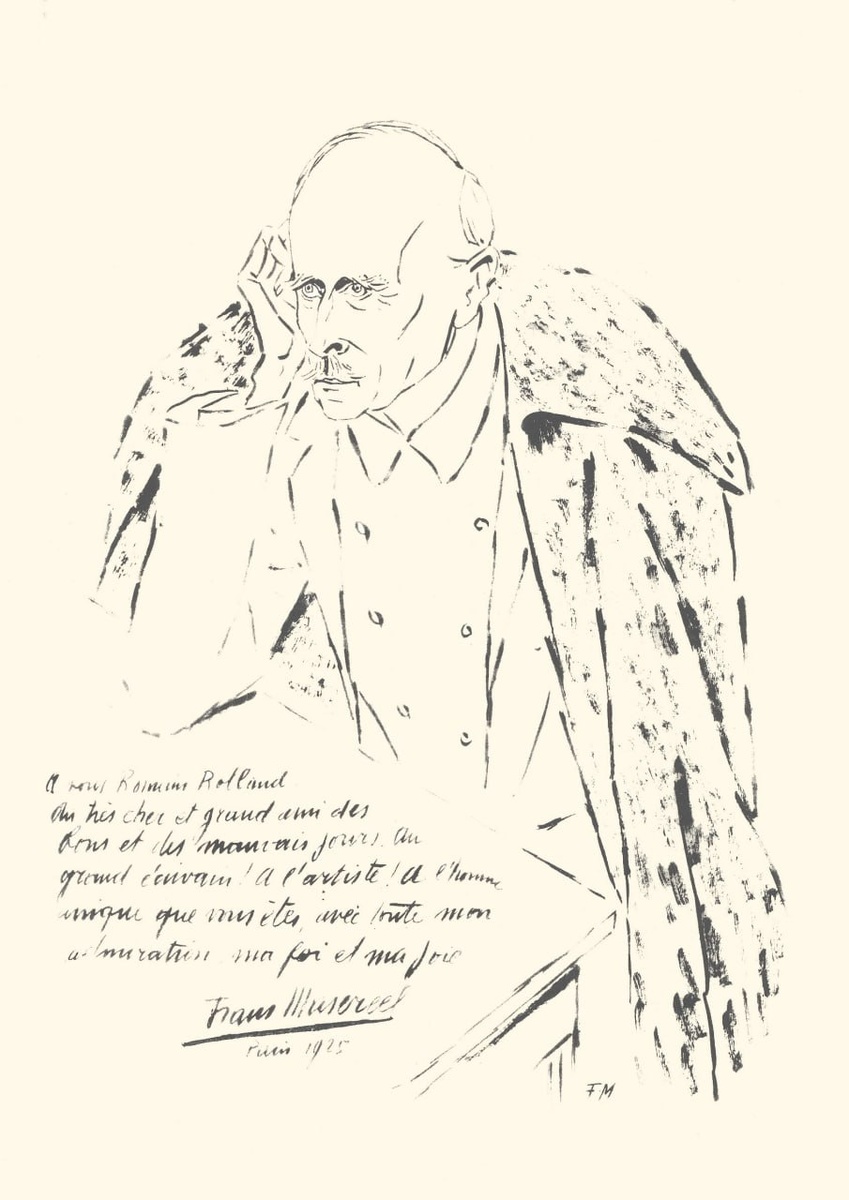 A vous Romain Rolland
Au très cher et grand ami des
bons et des mauvais jours. Au
grand écrivain! A l'artiste! A l'homme
unique que vous êtes, avec toute mon
admiration, ma foi et ma joie
Frans Masereel
Paris 1925
FM